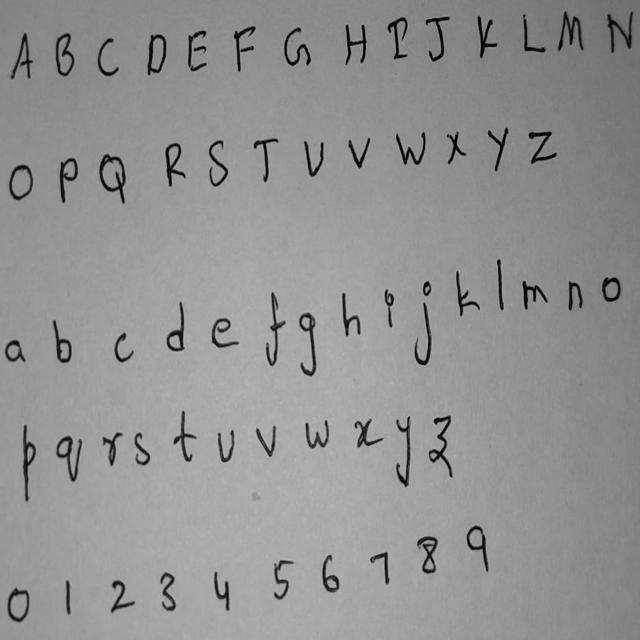 A B C D E F G H I J K L M N
O P Q R S T U V W X Y Z
a b c d e f g h i j k l m n o
p q r s t u v w x y z
0 1 2 3 4 5 6 7 8 9